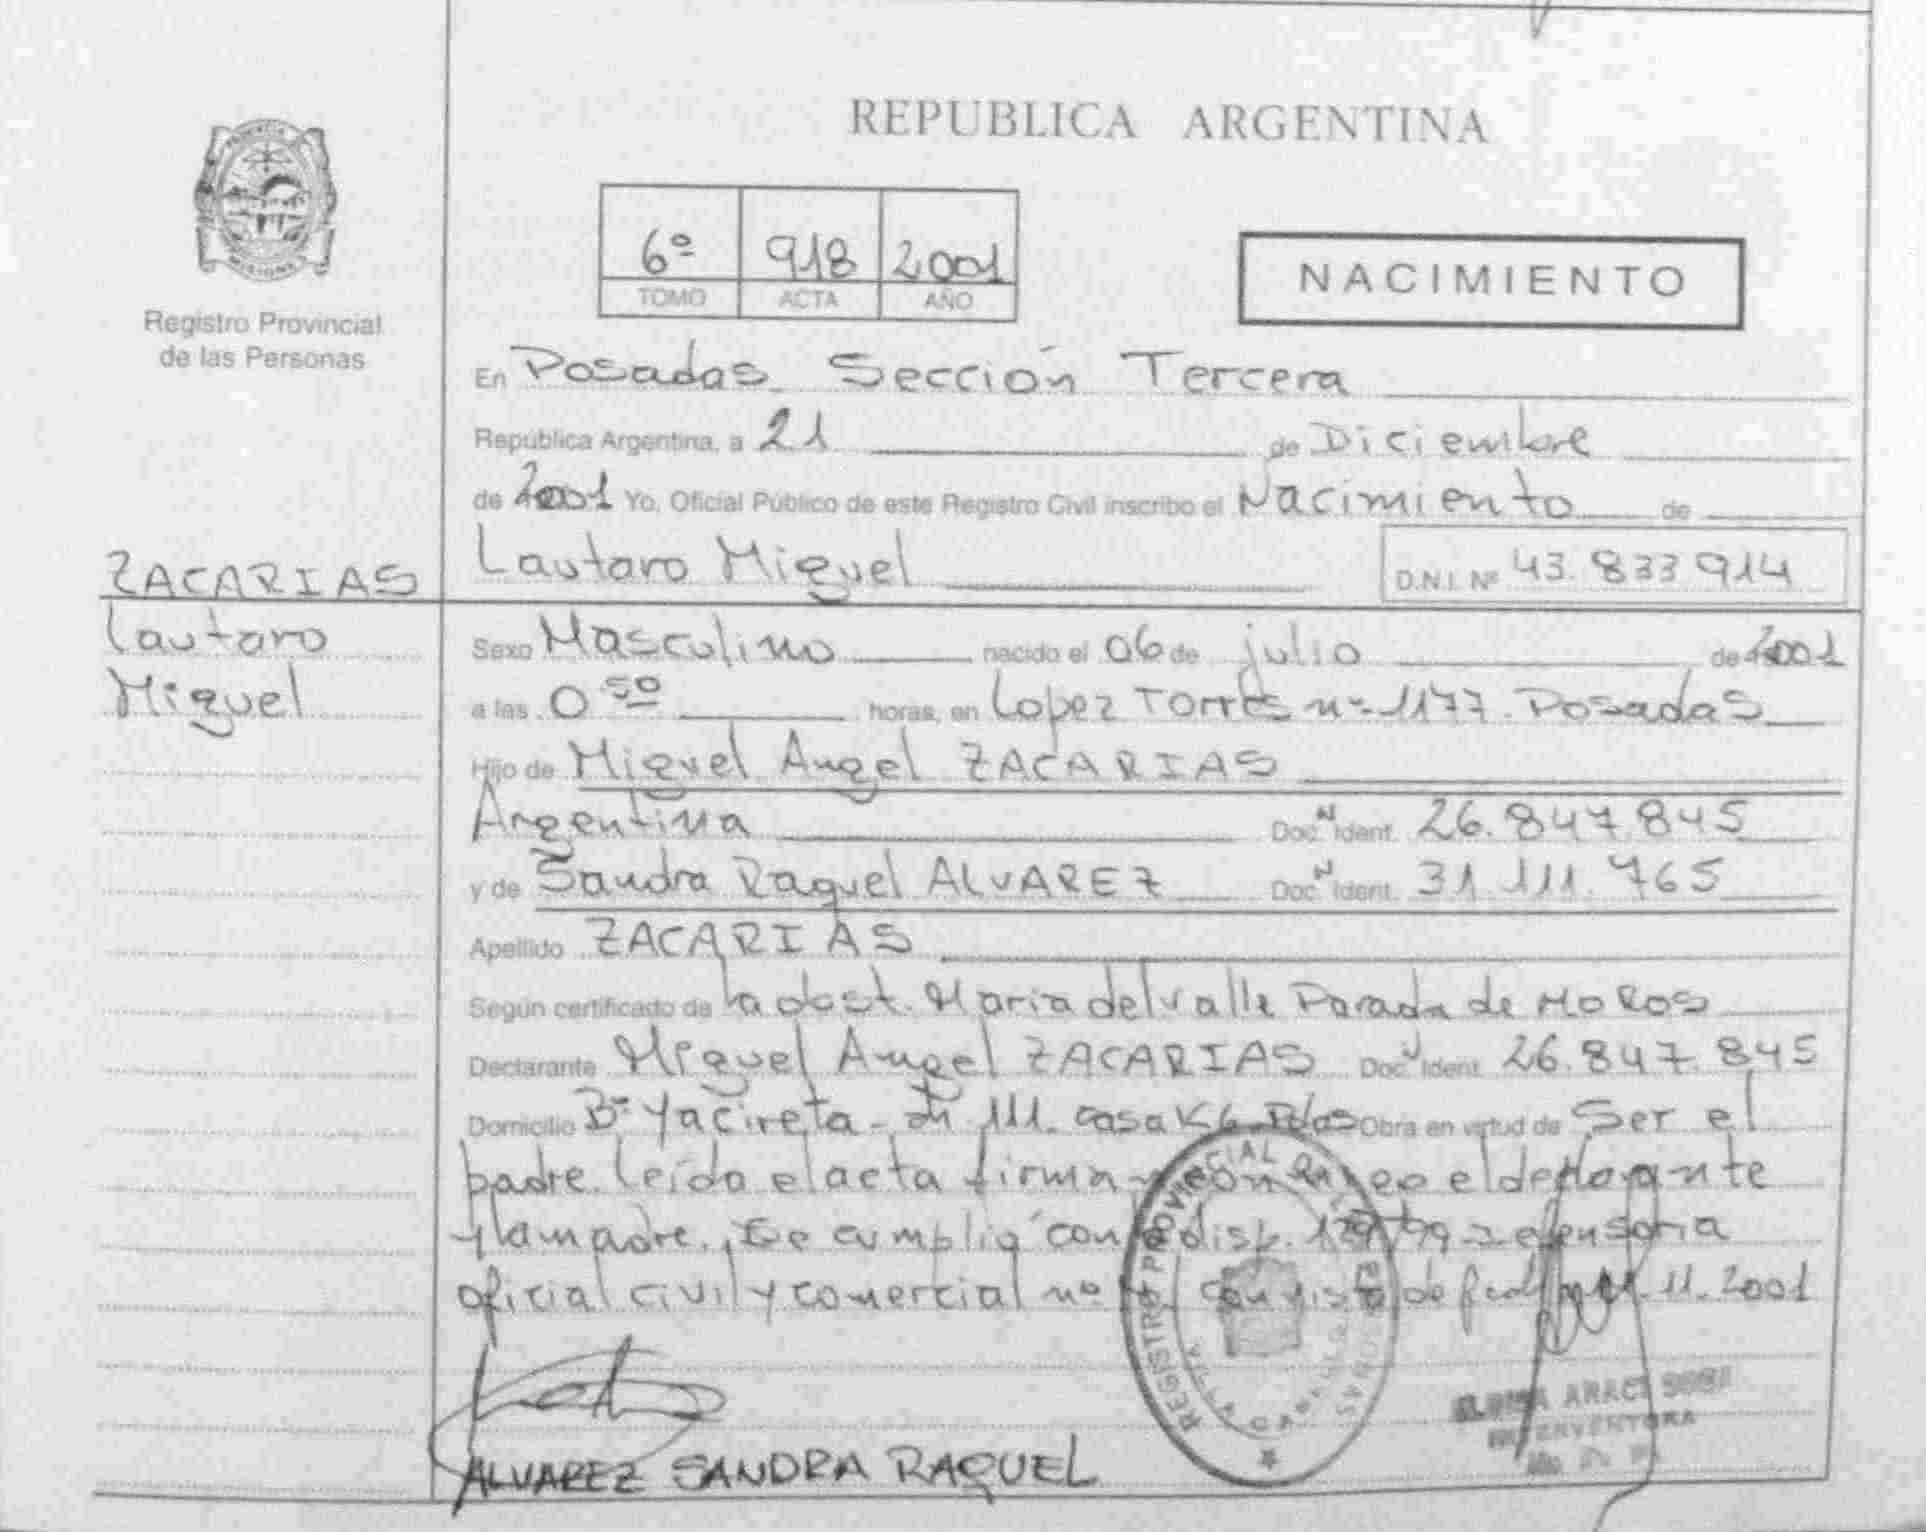 REPUBLICA ARGENTINA
PROVINCIA
MISIONES
Registro Provincial
de las Personas
6º 918 2001
TOMO ACTA AÑO
NACIMIENTO
En Posadas Sección Tercera
República Argentina, a 21 de Diciembre
de 2001 Yo, Oficial Público de este Registro Civil inscribo el Nacimiento de
Lautaro Miguel D.N.I. Nº 43.833 914
ZACARIAS
Lautaro
Miguel
Sexo Masculino nacido el 06 de julio de 2001
a las 0 50 horas, en Lopez Torres nº 1177. Posadas
Hijo de Miguel Angel ZACARIAS
Argentina Doc. N Ident. 26.847.845
y de Sandra Raquel ALVAREZ Doc. N Ident. 31.111.765
Apellido ZACARIAS
Según certificado de la obst. Maria del valle Parada de MOROS
Declarante Miguel Angel ZACARIAS Doc. N Ident. 26.847.845
Domicilio Bº Yacireta - ch 111. casa K6. Pdas Obra en virtud de Ser el
padre. Leída el acta firman con migo el declarante
y la madre. Se cumplió con disp. defensoria
oficial civil y comercial nº con vista de fecha 11.2001
ALVAREZ SANDRA RAQUEL
REGISTRO PROVINCIAL DE LAS PERSONAS
VILLA CABELLO
ARACI SOSA
INTERVENTORA